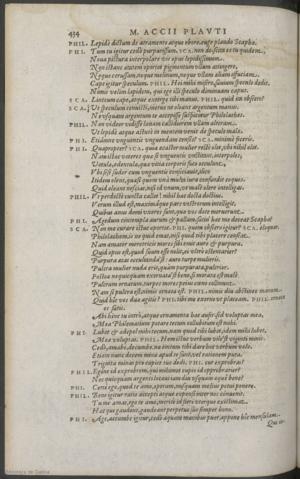 434 M. ACCII PLAVTI
PHIL. Lepidè dictum de atramento atque ebore. euge plaudo Scaphæ.
PHI. Tum tu igitur cedo purpurissum. SCA. non do. scita es tu quidem.
Noua pictura interpolare vis opus lepidissimum.
Non istanc ætatem oportet pigmentum vllum attingere,
Neque cerussam, neque melinum, neque vllam aliam offuciam.
Cape igitur speculum. PHIL. Hei mihi misero, sauium speculo dedit.
Nimis velim lapidem, qui ego illi speculo diminuam caput.
SCA. Linteum cape, atque exterge tibi manus. PHI. quid ita obsecro?
SCA. Vt speculum tenuisti, metuo ne oleant argentum manus:
Ne vsquam argentum te accepisse suspicetur Philolaches.
PHIL. Non videor vidisse lenam callidiorem vllam alteram.
Vt lepidè atque astutè in mentem venit de speculo malæ.
PHI. Etiámne vnguentis vnguendam censes? SCA. minimè feceris.
PHI. Quapropter? SCA. quia ecastor mulier rectè olet, vbi nihil olet.
Nam istæ veteres quæ se vnguentis vnctitant, interpoles,
Vetulæ, edentulæ, quæ vitia corporis fuco occulunt,
Vbi sese sudor cum vnguentis consociauit, illico
Itidem olent, quasi quom vna multa iura confundit coquus.
Quid oleant nescias, nisi id vnum, vt malè olere intelligas.
PHIL. Vt perdoctè cuncta callet! nihil hac docta doctius.
Verum illud est, maximáque pars vestrorum intelligit,
Quibus anus domi vxores sunt, quæ vos dote meruerunt.
PHI. Agedum contempla aurum & pallam satin' hæc me deceat Scapha?
SCA. Non me curare istuc oportet. PHI. quem obsecro igitur? SCA. eloquar.
Philolachem, is ne quid emat, nisi quod tibi placere censeat.
Nam amator meretricis mores sibi emit auro & purpura.
Quid opus est, quod suum esse nolit, ei vltro ostentarier?
Purpura ætas occultanda est: aurum turpe mulieri.
Pulcra mulier nuda erit, quàm purpurata pulcrior.
Postea nequicquam exornata est bene, si morata est malè.
Pulcrum ornatum turpes mores peius cœno collinunt.
Nam si pulcra est, nimis ornata est. PHIL. nimis diu abstineo manum.
Quid hîc vos duæ agitis? PHI. tibi me exorno vt placeam. PHIL. ornata
es satis.
Abi hinc tu intrò, atque ornamenta hæc aufer. sed voluptas mea,
Mea Philematium potare tecum collubitum est mihi.
PHI. Lubet & edepol mihi tecum, nam quod tibi lubet, idem mihi lubet,
Mea voluptas. PHIL. Hem istuc verbum vile est viginti minis.
PHI. Cedo, amabo, decem, bene emptum tibi dare hoc verbum volo.
Etiam nunc decem minæ apud te sunt, vel rationem puta.
Triginta minas pro capite tuo dedi. PHI. cur exprobras?
PHIL. Egóne id exprobrem, qui mihimet cupio id opprobrarier?
Nec quicquam argenti locaui iam diu vsquam æquè bene?
PHI. Certè ego, quod te amo, operam nusquam melius potui ponere.
PHIL. Bene igitur ratio accepti atque expensi inter nos conuenit.
Tu me amas, ego te amo, meritò id fieri vterque existimat.
Hæc qui gaudent, gaudeant perpetuò suo semper bono.
PHI. Age, accumbe igitur, cedo aquam manibus puer, appone hîc mensulam.